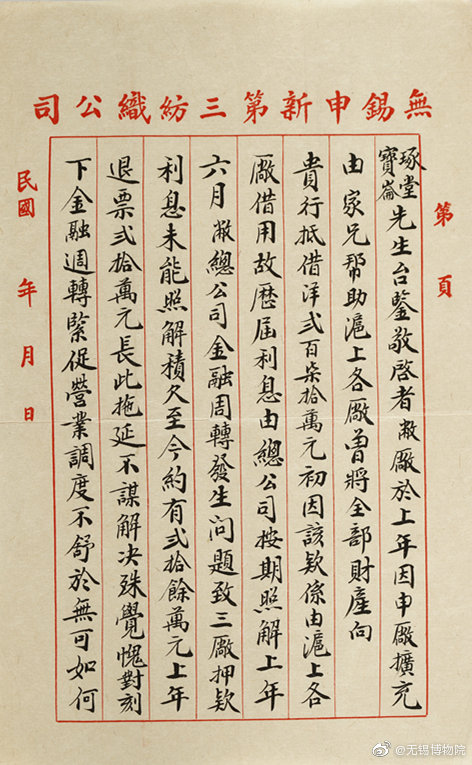 無錫申新第三紡織公司
第 頁
琢堂
寶崙
先生台鑒敬啓者敝廠於上年因申廠擴充
由家兄幫助滬上各廠曾將全部財產向
貴行抵借洋弍百柒拾萬元初因該欵係由滬上各
廠借用故歷屆利息由總公司按期照解上年
六月敝總公司金融周轉發生问題致三廠押欵
利息未能照解積欠至今約有弍拾餘萬元上年
退票弍拾萬元長此拖延不謀解决殊覺愧對刻
下金融週轉緊促營業調度不舒於無可如何
民國 年 月 日
@无锡博物院